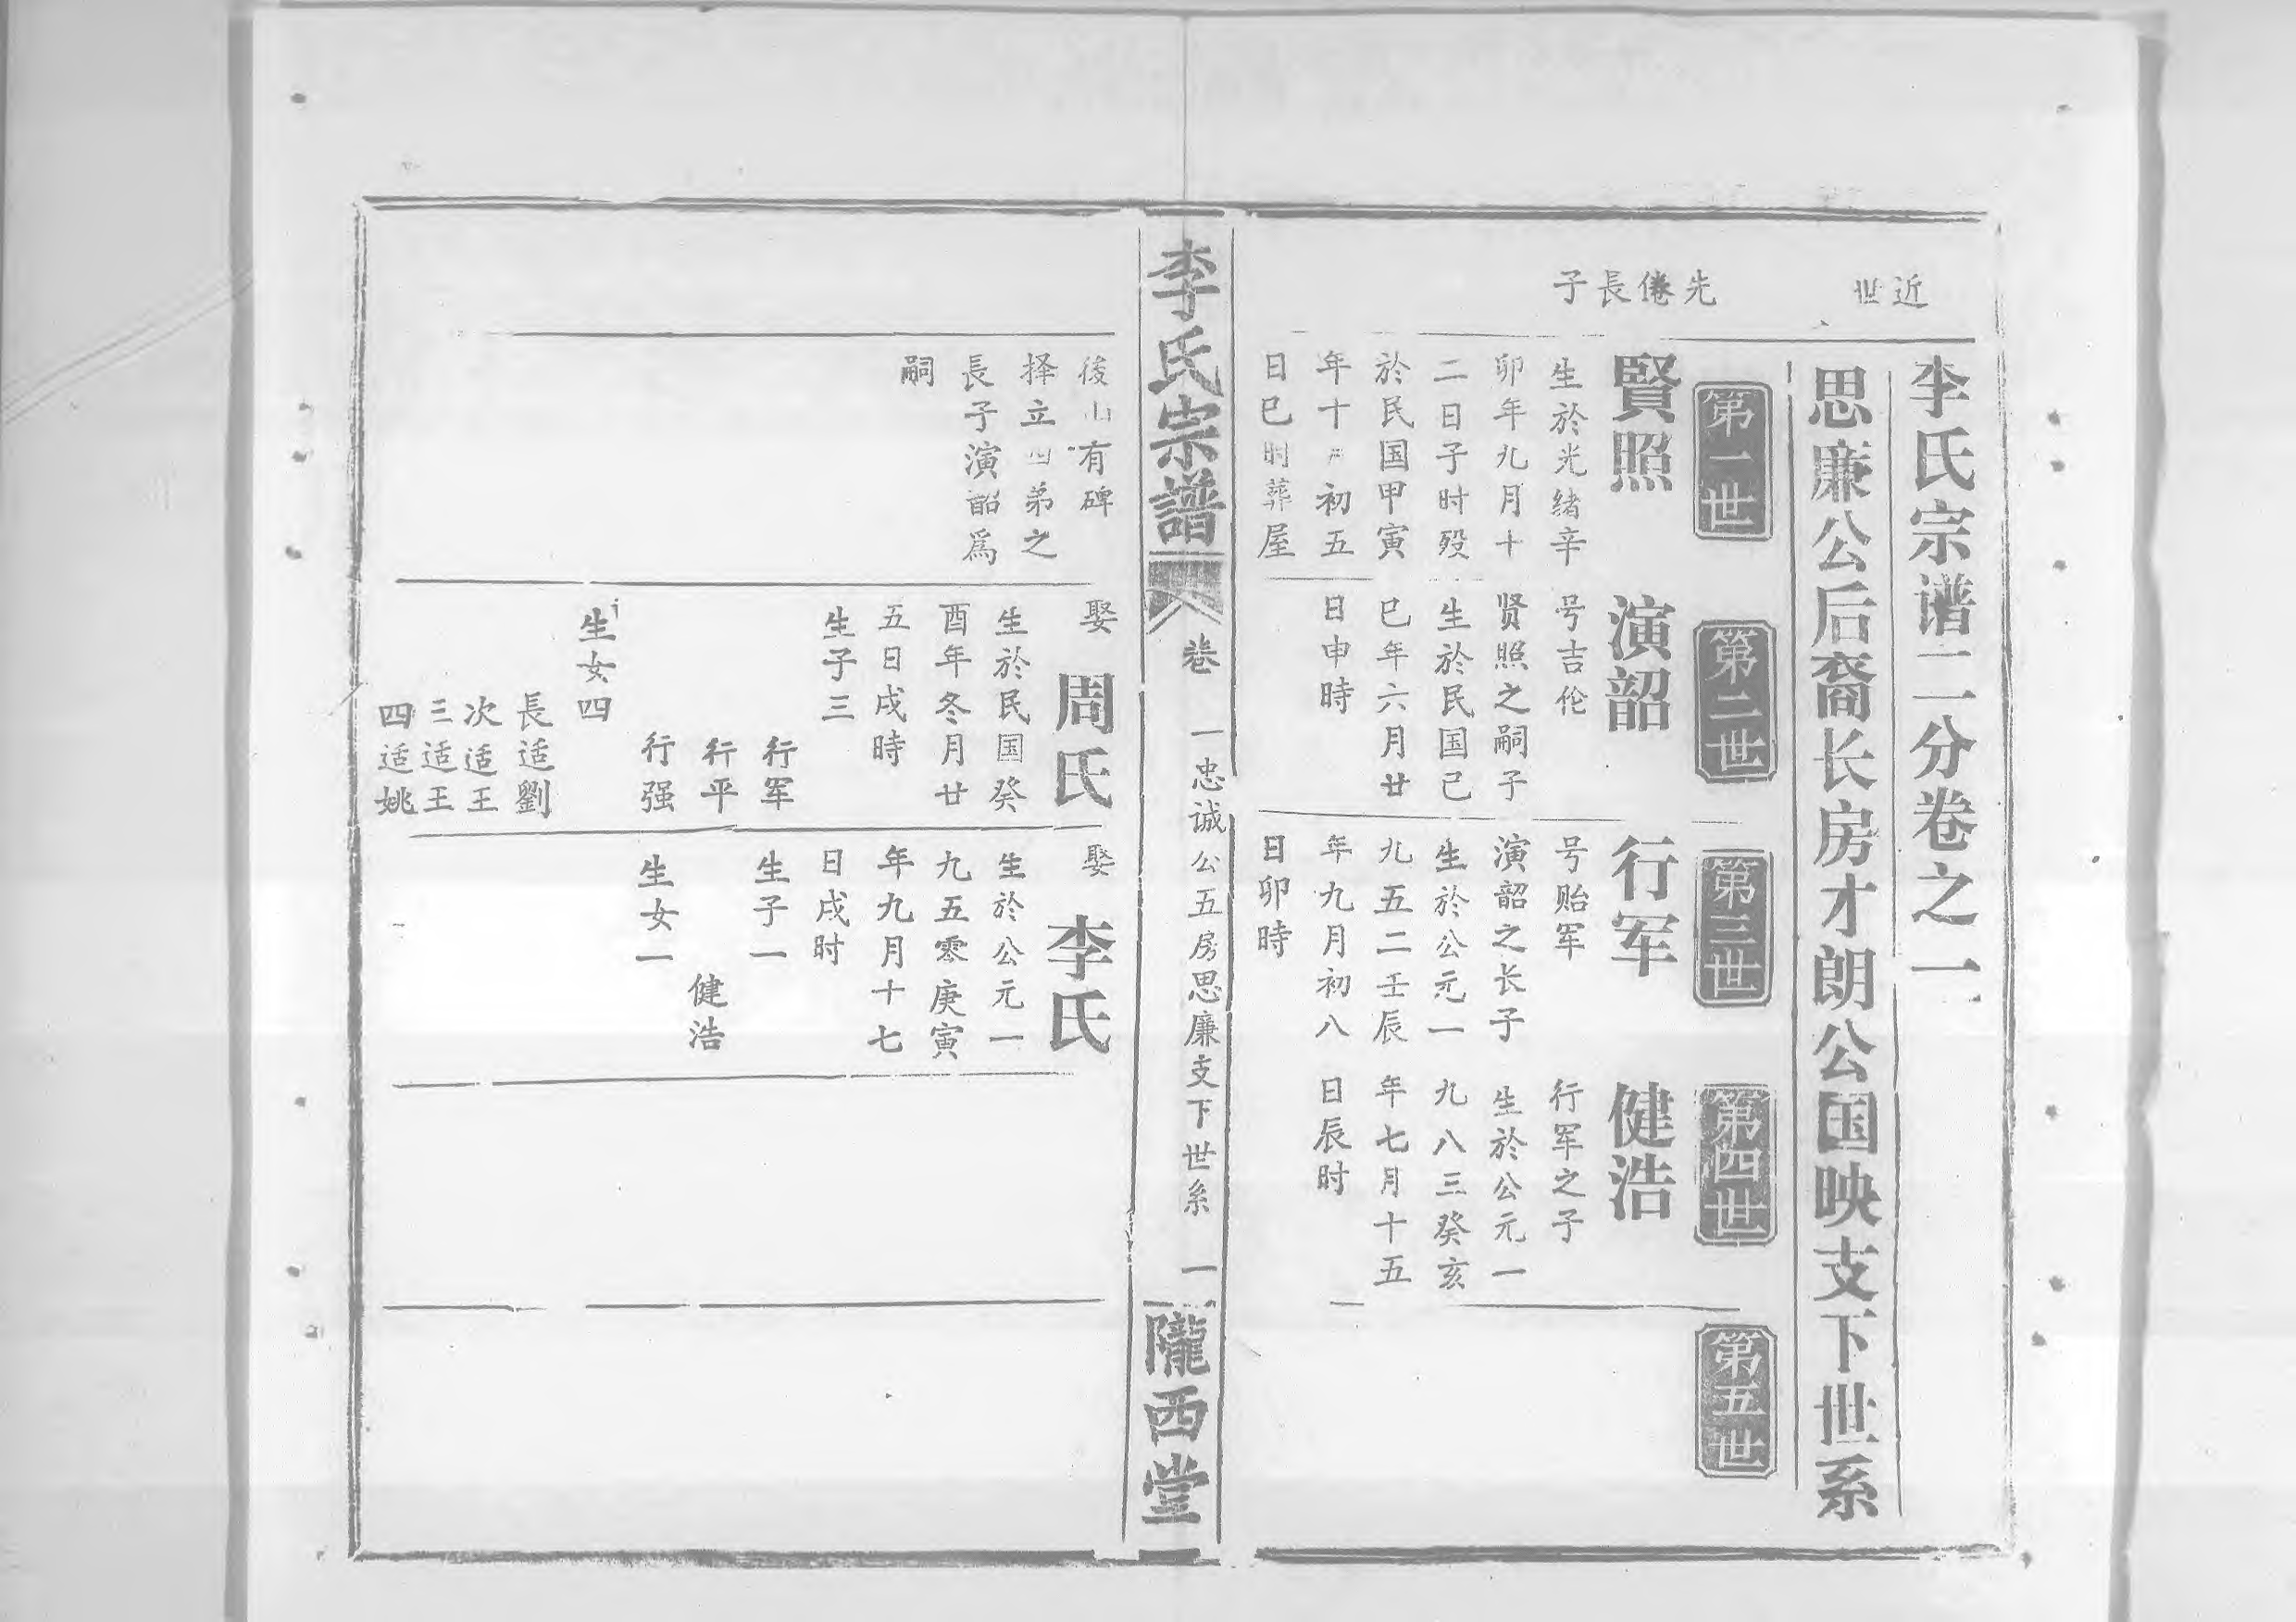 李氏宗谱二分卷之一
思廉公后裔长房才朗公国映支下世系
近世
先倦長子
第一世
賢照
生於光绪辛
卯年九月十
二日子时殁
於民国甲寅
年十月初五
日巳时葬屋
第二世
演韶
号吉伦
贤照之嗣子
生於民国己
巳年六月廿
日申時
第三世
行军
号贻军
演韶之长子
生於公元一
九五二壬辰
年九月初八
日卯時
第四世
健浩
行军之子
生於公元一
九八三癸亥
年七月十五
日辰时
第五世
李氏宗譜
卷
一忠诚公五房思廉支下世系
一
隴西堂
後山有碑
择立四弟之
長子演韶爲
嗣
娶
周氏
生於民国癸
酉年冬月廿
五日戌時
生子三
行军
行平
行强
生女四
長适劉
次适王
三适王
四适姚
娶
李氏
生於公元一
九五零庚寅
年九月十七
日戌时
生子一
健浩
生女一